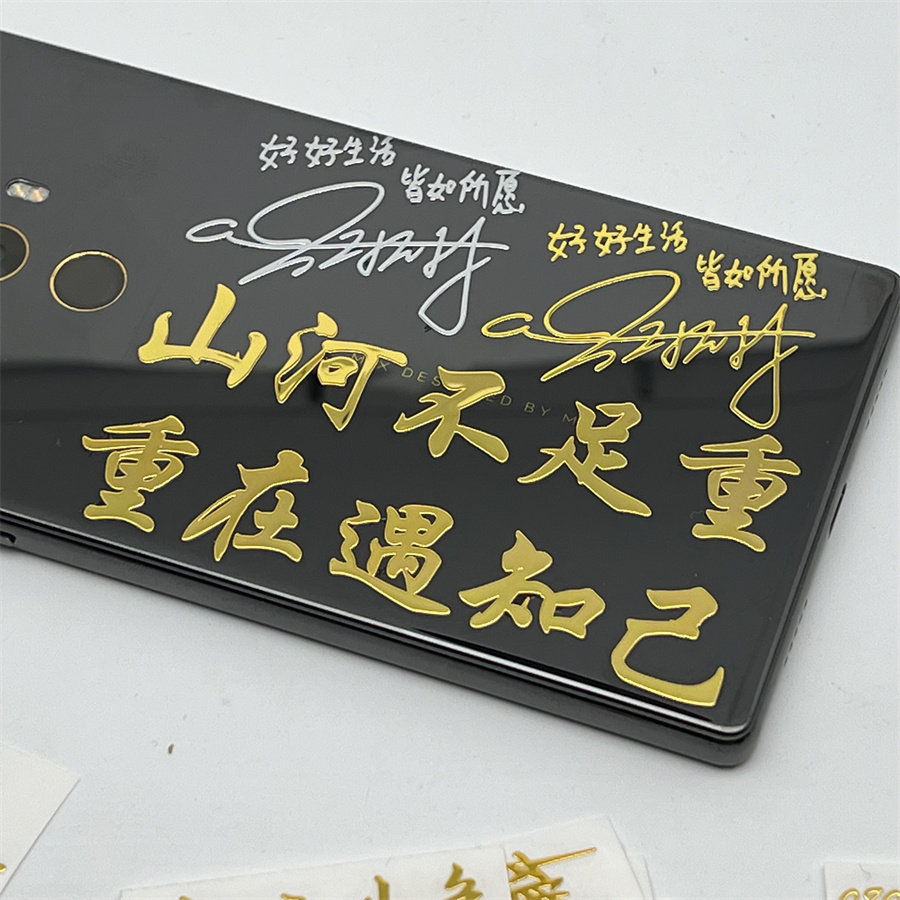 好好生活
皆如所愿
好好生活
皆如所愿
山河不足重
重在遇知己